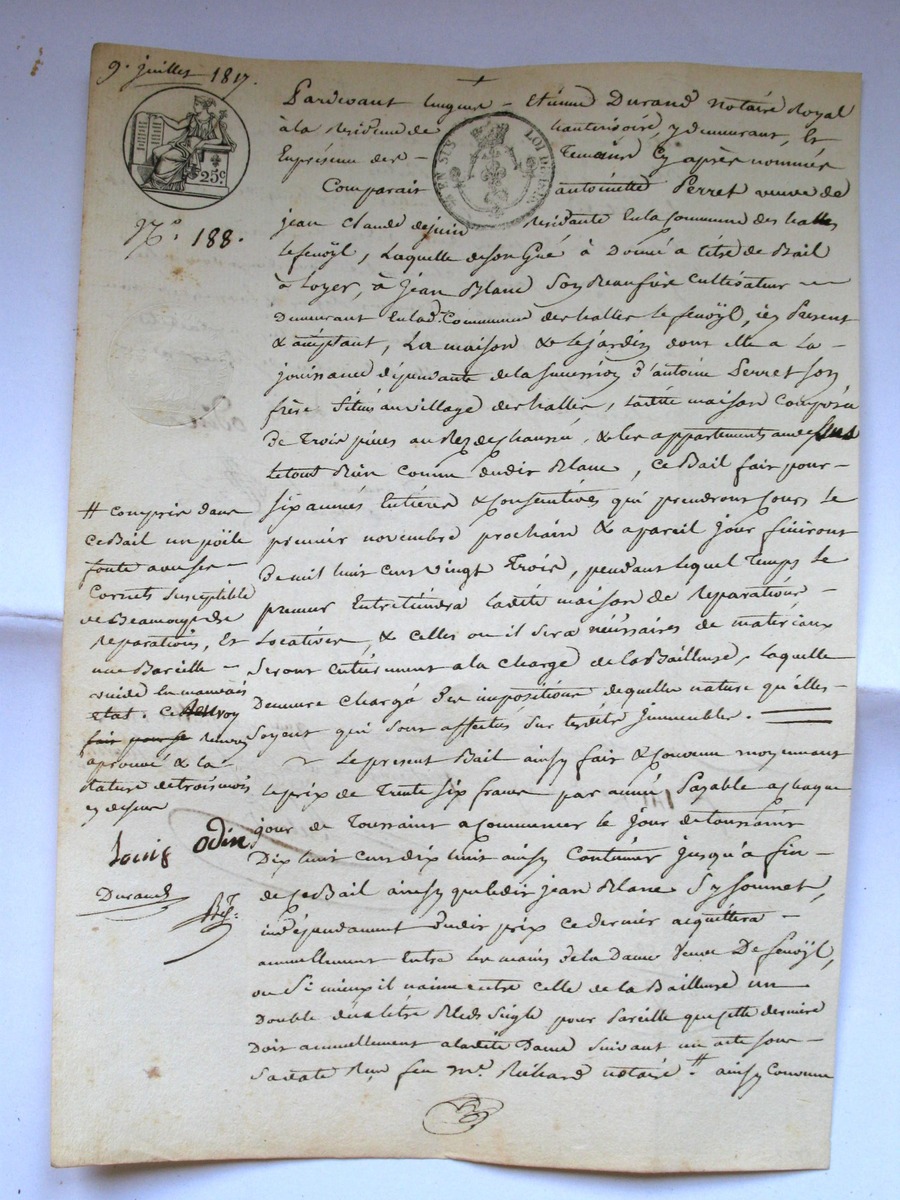 9. juillet 1817.
25c
No. 188.
Pardevant Etienne Durand Notaire Royal
à la Residence de hauterivoire, y demeurant, &
En présence des Temoins Cy après nommés
Comparait antoinette Perret veuve de
jean Claude dejuin Residante En la Commune des halles
lefenöyl, Laquelle de son Gué à Donné a titre de Bail
à Loyer, à Jean Blanc Son Beaufrére Cultivateur
Demeurant en lad. Commune des halles le fenöyl, icy Present
& acceptant, La maison & le jardin dont elle a La
jouissance dépendante de la succession d'antoine Perret son
frére Situés au village des halles, ladite maison Composée
De Trois piéces au Rez de chaussé, & les appartements audessus
Letout Rien comme dudit Blanc, ce Bail fait pour
Six années Entiéres & Consecutives qui prendront Cours le
premier novembre prochain & apareil jour finiront
De mil huit cent vingt Trois, pendant lequel Temps le
preneur Entretiendra ladite maison de Reparations
Locatives, & celles ou il sera néssaires de matériaux
Seront entiérement a la charge de la Bailleuse, Laquelle
Demeure chargé des impositions dequelles nature qu'elles
Soyent qui sont affectés sur lesdits Immeubles.
Le present Bail ainsy fait & Convenu moyennant
Le prix de Trente Six francs par année Payable achaque
jour de Toussaint a Commencer le jour de toussaint
Dix huit cent dix huit ainsy Continuer jusqu'a fin
de Ce Bail ainsy que ledit jean Blanc s'y soumet,
indépendament dudit prix ce dernier acquittera
annuellement Entre les mains de la Dame Veuve De fenöyl,
ou Si mieux il n'aime entre celle de la Bailleuse un
Double décalitre Bled Seigle pour Pareille que cette derniére
Doit annuellement a ladite Dame Suivant un acte sous
Sa date Reçu feu Me. Richard notaire. # ainsy Convenu
# compris dans
Ce Bail un poële
fonte avec ses
Cornets Susceptible
de Beaucoup de
reparations, Et
une Bareille
vuide En mauvais
état. Ce Renvoy
fait pour se
aprouvé & la
rature de trois mots
cy dessus
Louis Odin
Durand